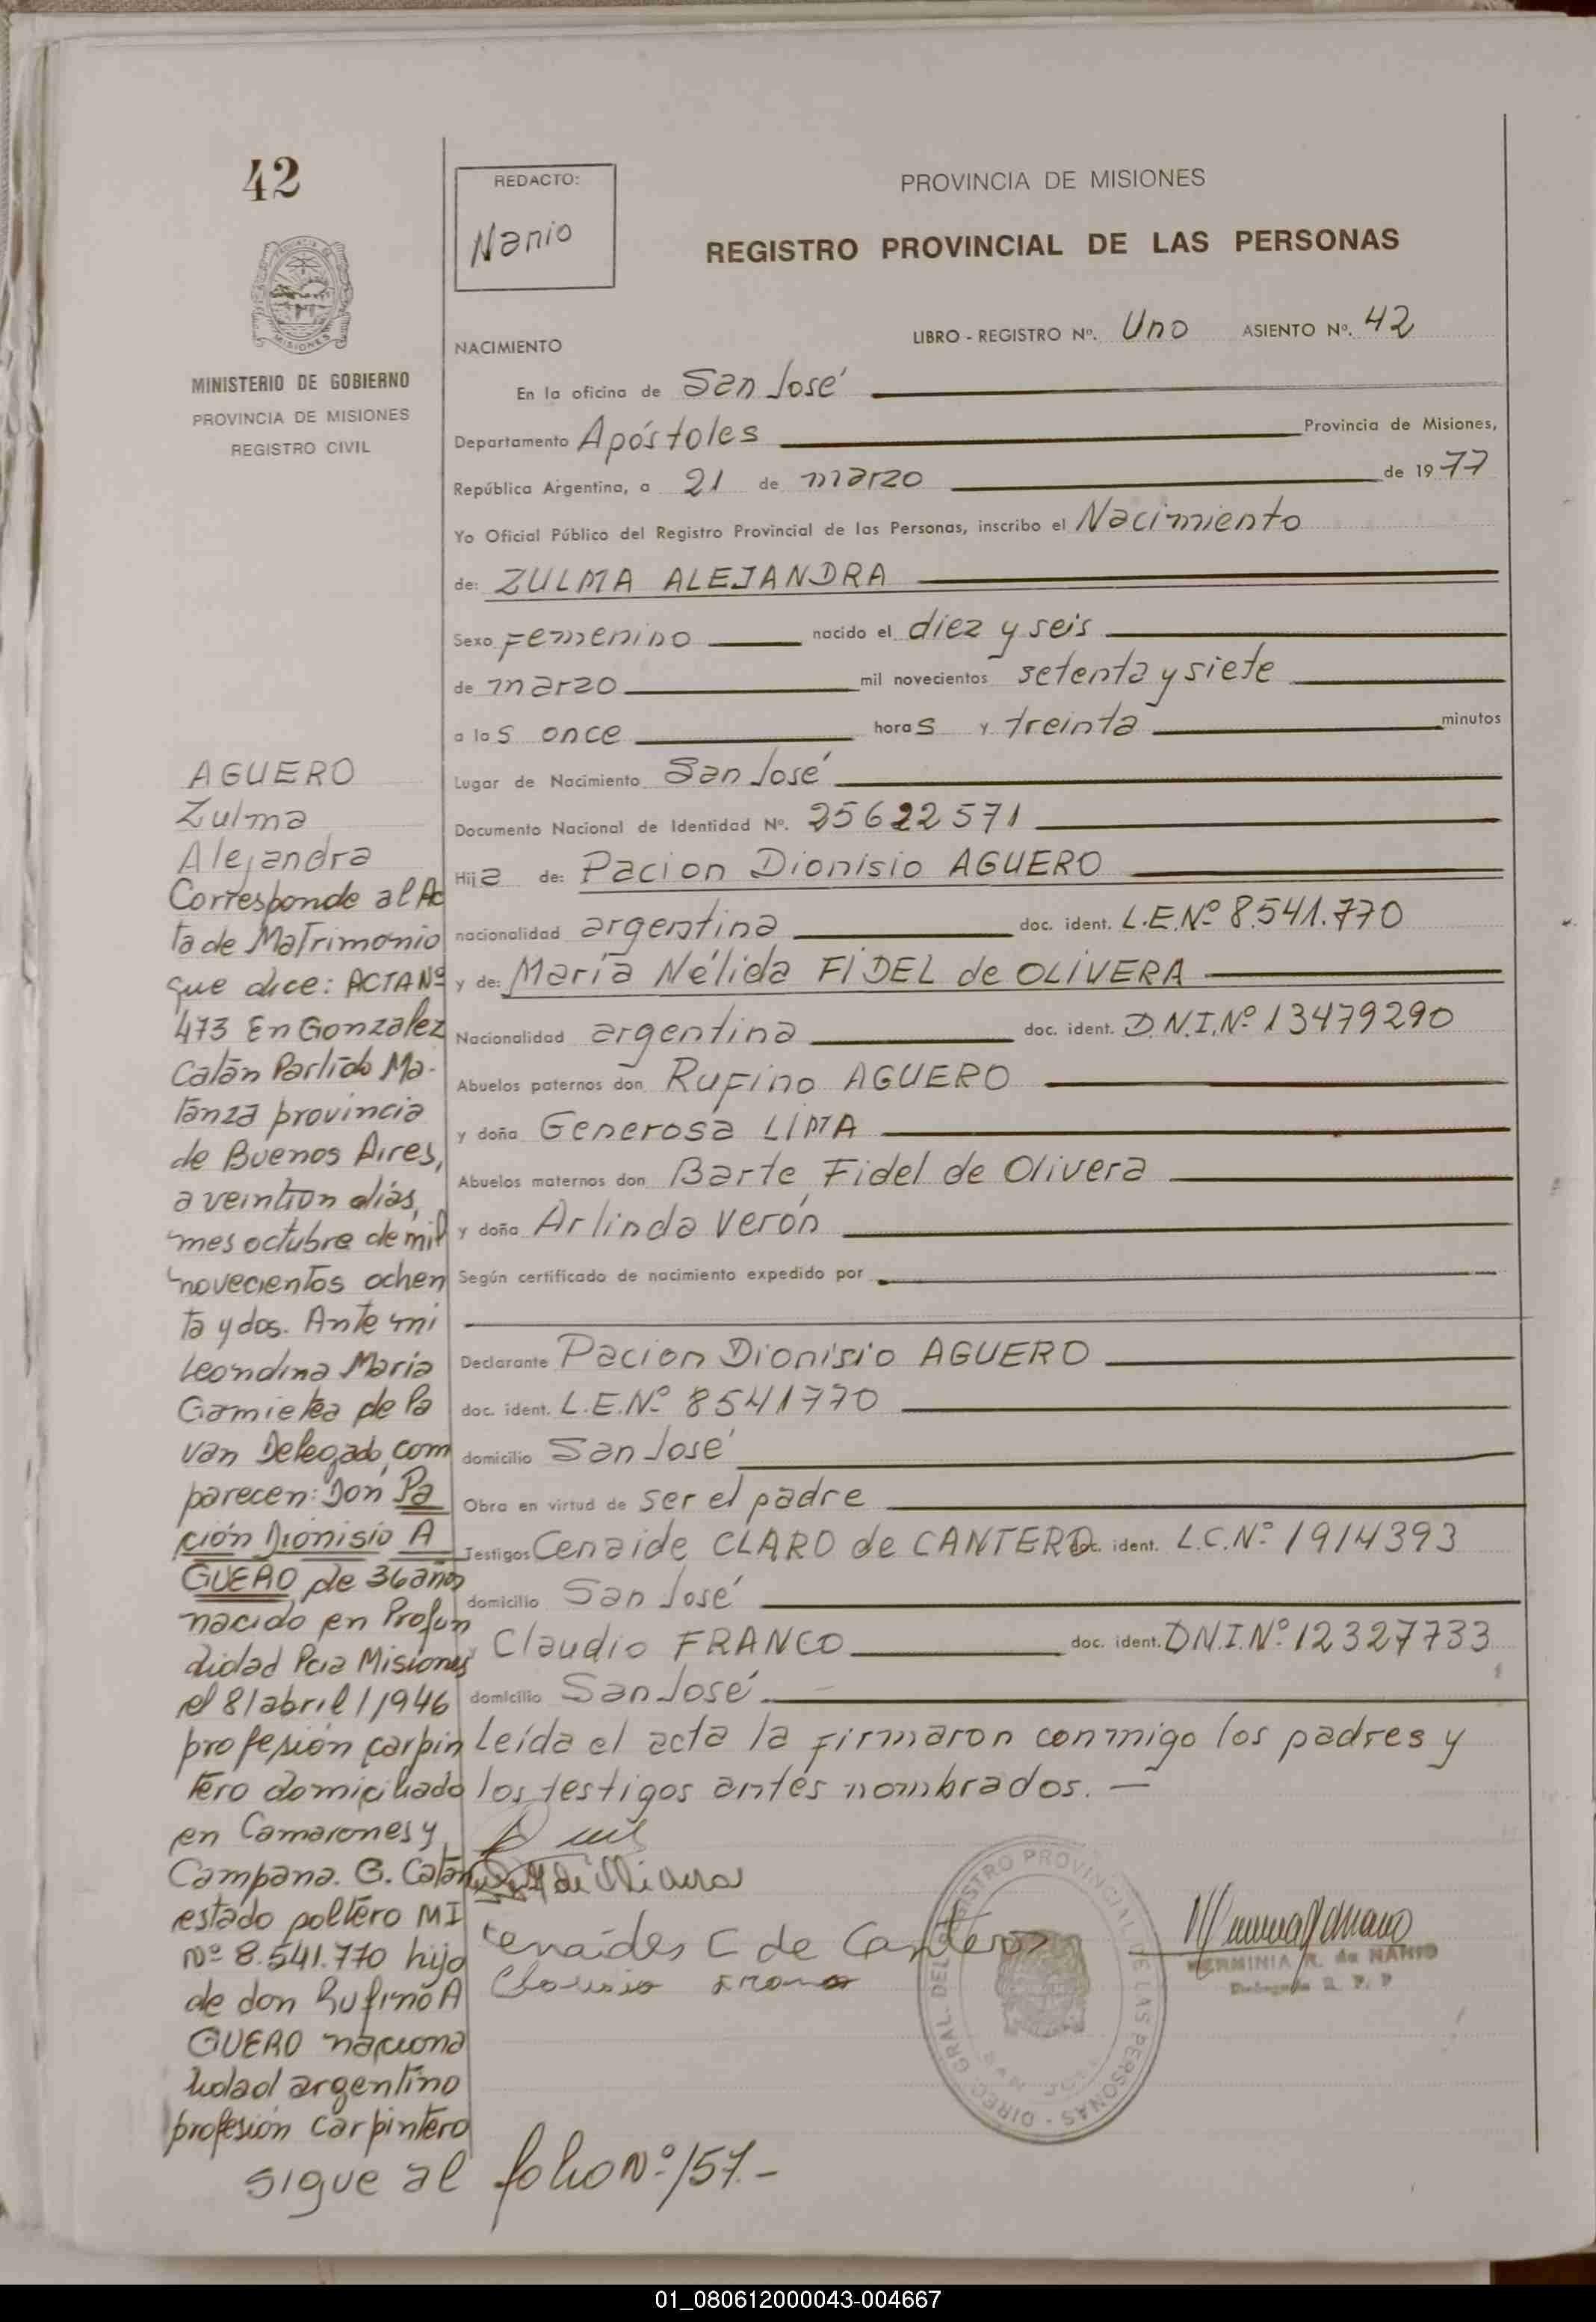 42
MISIONES
MINISTERIO DE GOBIERNO
PROVINCIA DE MISIONES
REGISTRO CIVIL
REDACTO:
Nanio
PROVINCIA DE MISIONES
REGISTRO PROVINCIAL DE LAS PERSONAS
LIBRO - REGISTRO Nº. Uno ASIENTO Nº. 42
NACIMIENTO
En la oficina de San José
Departamento Apóstoles Provincia de Misiones,
República Argentina, a 21 de marzo de 1977
Yo Oficial Público del Registro Provincial de las Personas, inscribo el Nacimiento
de: ZULMA ALEJANDRA
Sexo Femenino nacido el diez y seis
de marzo mil novecientos setenta y siete
a las once horas y treinta minutos
Lugar de Nacimiento San José
Documento Nacional de Identidad Nº. 25622571
Hija de: Pacion Dionisio AGUERO
nacionalidad argentina doc. ident. L.E.Nº 8.541.770
y de: María Nélida FIDEL de OLIVERA
Nacionalidad argentina doc. ident. D.N.I.Nº 13479290
Abuelos paternos don Rufino AGUERO
y doña Generosa LIMA
Abuelos maternos don Barte Fidel de Olivera
y doña Arlinda Verón
Según certificado de nacimiento expedido por
Declarante Pacion Dionisio AGUERO
doc. ident. L.E.Nº 8541770
domicilio San José
Obra en virtud de ser el padre
Testigos Cenaide CLARO de CANTERO doc. ident. L.C.Nº 1914393
domicilio San José
y Claudio FRANCO doc. ident. D.N.I.Nº 12327733
domicilio San José
leída el acta la firmaron conmigo los padres y
los testigos antes nombrados. —
AGUERO
Zulma
Alejandra
Corresponde al Ac
ta de Matrimonio
que dice: ACTA Nº
473 En Gonzalez
Catán Partido Ma-
tanza provincia
de Buenos Aires,
a veintiun días,
mes octubre de mil
novecientos ochen
ta y dos. Ante mi
Leondina María
de la
van Delegado, com
parecen: Don Pa
ción Dionisio A
GUERO de 36 años
nacido en Profun
didad Pcia Misiones
el 8/abril/1946
profesión carpin
tero domiciliado
en Camarones y
Campana. G. Catán
estado soltero MI
Nº 8.541.770 hijo
de don Rufino A
GUERO naciona
lidad argentino
profesión carpintero
sigue al folio Nº 157.-
de Olivera
Cenaides C de Cantero
Claudio Franco
DIREC. GRAL. DEL REGISTRO PROVINCIAL DE LAS PERSONAS
SAN JOSE
HERMINIA R. de NANIO
Delegada R. P. P
01_080612000043-004667